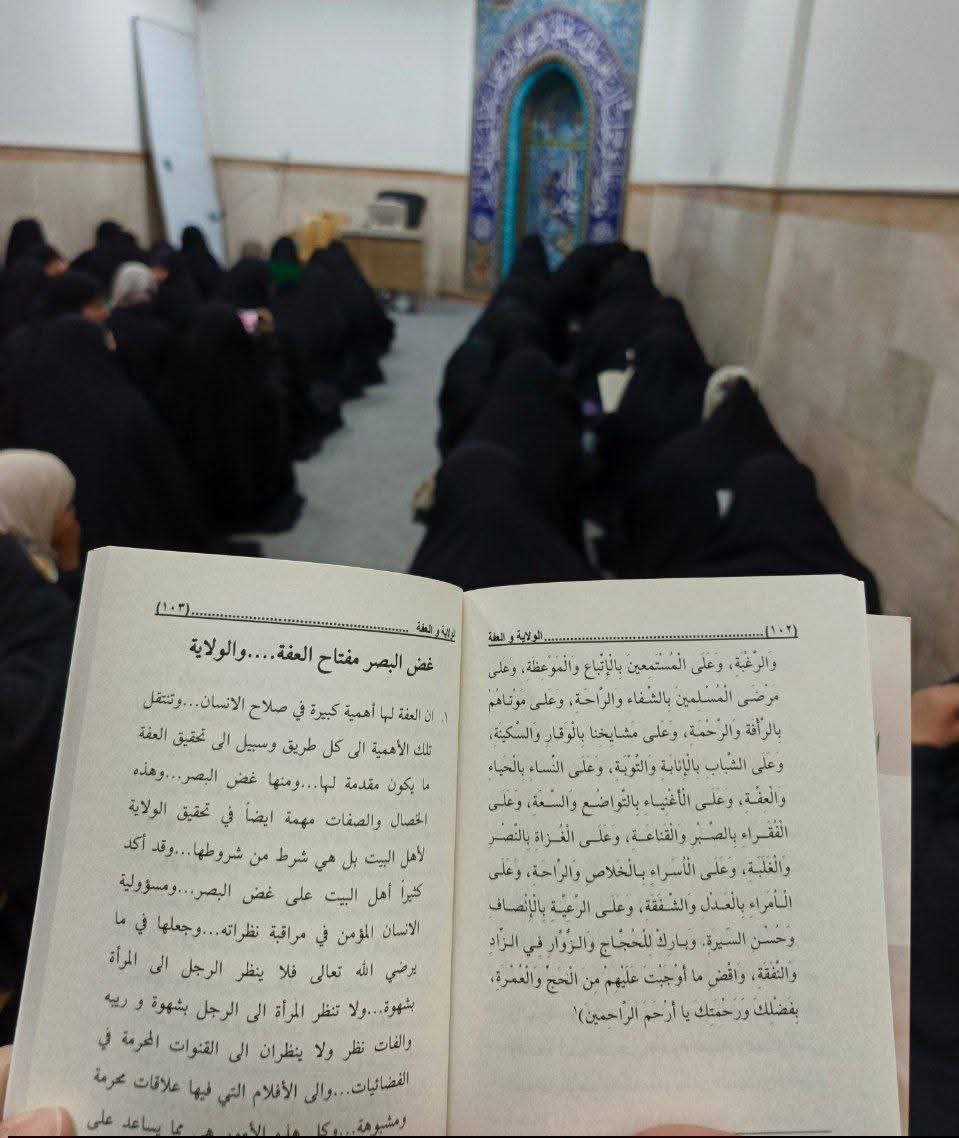 (١٠٢)......................................................الولاية و العفة
وَالرَّغْبَةِ، وَعَلَى الْمُسْتَمِعينَ بِالْإتِّباعِ وَالْمَوْعِظَةِ، وعلى
مَرْضَى الْمُسْلمينَ بالشِّفاء والرَّاحَة، وعلى مَوْتاهُمْ
بِالرَّأفَة وَالرَّحْمَة، وَعَلى مَشايخنا بِالْوَقارِ وَالسَّكينَة،
وَعَلى الشبابِ بالإِنابَة والتَّوْبَة، وَعَلَى النِّساء بِالْحياء
وَالْعفَّة، وَعَلَى الْأغْنِيـاء بِالتَّواضُعِ والسَّعَةِ، وَعَلَى
الْفُقَـراءِ بِالصَّبْرِ وَالْقَناعَـةِ، وَعَلَـى الْغُزاة بِالنَّصْـر
وَالْغَلَبَة، وَعَلَى الْأسَراءِ بِالْخَلاصِ وَالرَّاحَة، وَعَلى
الْـأمَراء بِالْعَدْلِ وَالشَّفَقَة، وعَلَى الرَّعيَّة بِالْإنْصـاف
وَحُسْـنِ السّيرَةِ. وَبـارِكْ لِلْحُجّـاجِ وَالـزُّوّارِ فِـي الـزَّادِ
وَالنَّفَقَةِ، وَاقْضِ ما أَوْجَبْتَ عَلَيْهِمْ من الْحَجِّ وَالْعُمْرةِ،
بِفَضْلكَ وَرَحْمَتكَ يا أَرْحَمَ الرَّاحمين)١
(١٠٣)......................................................الولاية و العفة
غض البصر مفتاح العفة....والولاية
١. ان العفة لها أهمية كبيرة في صلاح الانسان...وتنتقل
تلك الأهمية الى كل طريق وسبيل الى تحقيق العفة
ما يكون مقدمة لها...ومنها غض البصر...وهذه
الخصال والصفات مهمة ايضاً في تحقيق الولاية
لأهل البيت بل هي شرط من شروطها...وقد أكد
كثيراً أهل البيت على غض البصر...ومسؤولية
الانسان المؤمن في مراقبة نظراته...وجعلها في ما
يرضي الله تعالى فلا ينظر الرجل الى المرأة
بشهوة...ولا تنظر المرأة الى الرجل بشهوة و ريبه
والفات نظر ولا ينظران الى القنوات المحرمة في
الفضائيات...والى الأفلام التي فيها علاقات محرمة
ومشبوهة...وكل هذه الأمور هي مما يساعد على